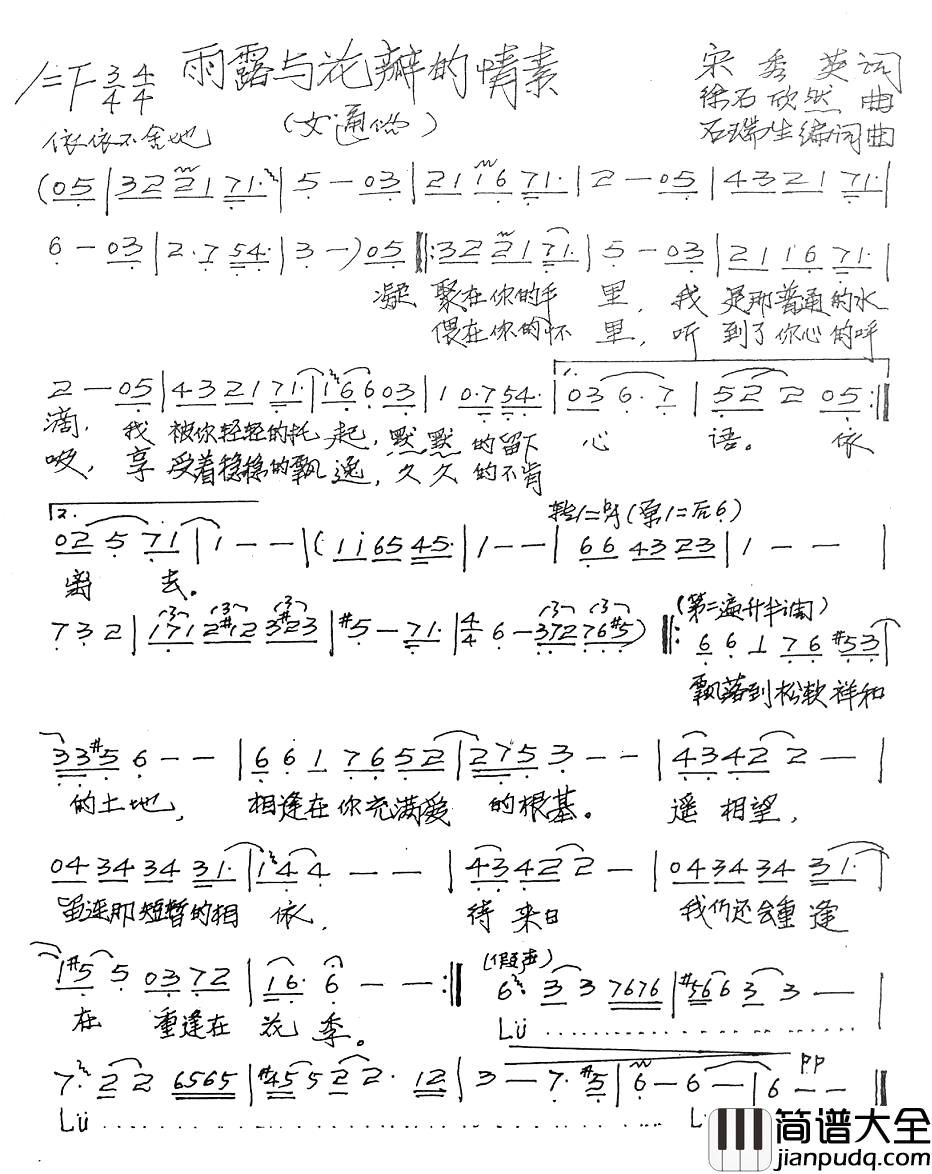 1=F 3/4 4/4 雨露与花瓣的情素 宋秀英词
徐石欣然曲
依依不舍地 (女通俗) 石瑞生编词曲
(05|32 21 71·|5 - 03|21 16 71·|2 - 05|43 21 71·|
6 - 03|2·7 54·|3 -)05‖:32 21 71·|5 - 03|21 16 71·|
凝 聚在你的手 里,我 是那普通的水
偎在你的怀 里,听 到了你心的呼
2 - 05|43 21 71·|16 6 03|1 0·7 54·|1. 03 6·7|52 2 05:‖
滴,我 被你轻轻的托 起,默默 的留下 心 语。 依
吸,享 受着稳稳的飘 逸,久久 的不肯
2. 转1=♭A(第1=后6)
02 5 71|1 - -|(11 65 45·|1 - -|66 43 23|1 - -|
离 去。
(第二遍升半调)
7 3 2|171 2#12 3#23|#5 - 71·|4/4 6 - 372 76#5)‖:6 6 1 76 #53|
飘落到松软祥和
33#5 6 - -|66 1 76 52|275 3 - -|4342 2 - -|
的土地, 相逢在你充满爱 的根基。 遥 相望,
04 34·34 31·|14 4 - -|4342 2 -|04 34 34 31·|
虽连那短暂的相 依, 待 来日 我们还会重逢
1#5 5 03 72|16· 6 - -:‖ (假声) 6· 3 3 7676|#56 6 3 3 -|
在 重逢在 花 季。 Lü
7· 2 2 6565|#45 5 2 2· 12|3 - 7· #5|6 - 6 -|6 - -‖
pp
Lü L
简谱大全
jianpudq.com